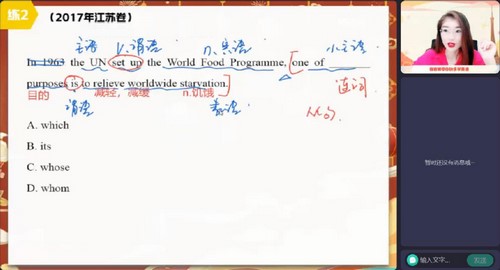 练2
（2017年江苏卷）
主语 v.谓语 n.宾语 小主语
In 1963 the UN set up the World Food Programme, one of
purposes is to relieve worldwide starvation.
连词
目的 减轻，减缓 n.饥饿
谓语 表语 从句
A. which
B. its
C. whose
D. whom
暂时还没有消息哦~
输入文字...
发送